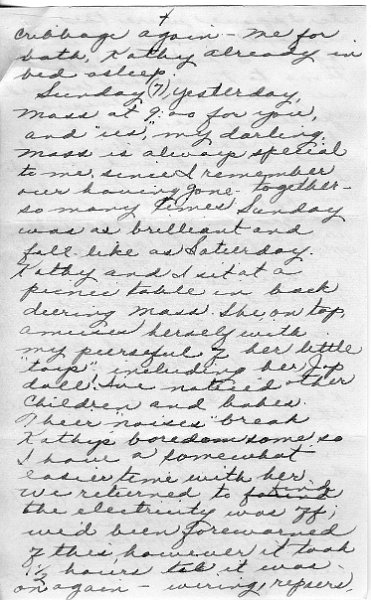 +
cribbage again - me for
bath, Kathy already in
bed asleep.
Sunday (7) yesterday,
Mass at 9:00 for you,
and us, my darling.
Mass is always special
to me, since I remember
our having gone together -
so many times. Sunday
was as brilliant and
fall-like as Saturday.
Kathy and I sit at a
picnic table in back
during Mass. She on top,
amuses herself with
my purseful of her little
"toys", including her
doll! I've noticed other
children and babes.
Their "noises" break
Kathy's boredom some so
I have a somewhat
easier time with her.
We returned to found
the electricity was off;
we'd been forewarned
of this however it took
1 1/2 hours till it was
on again - wiring repairs,